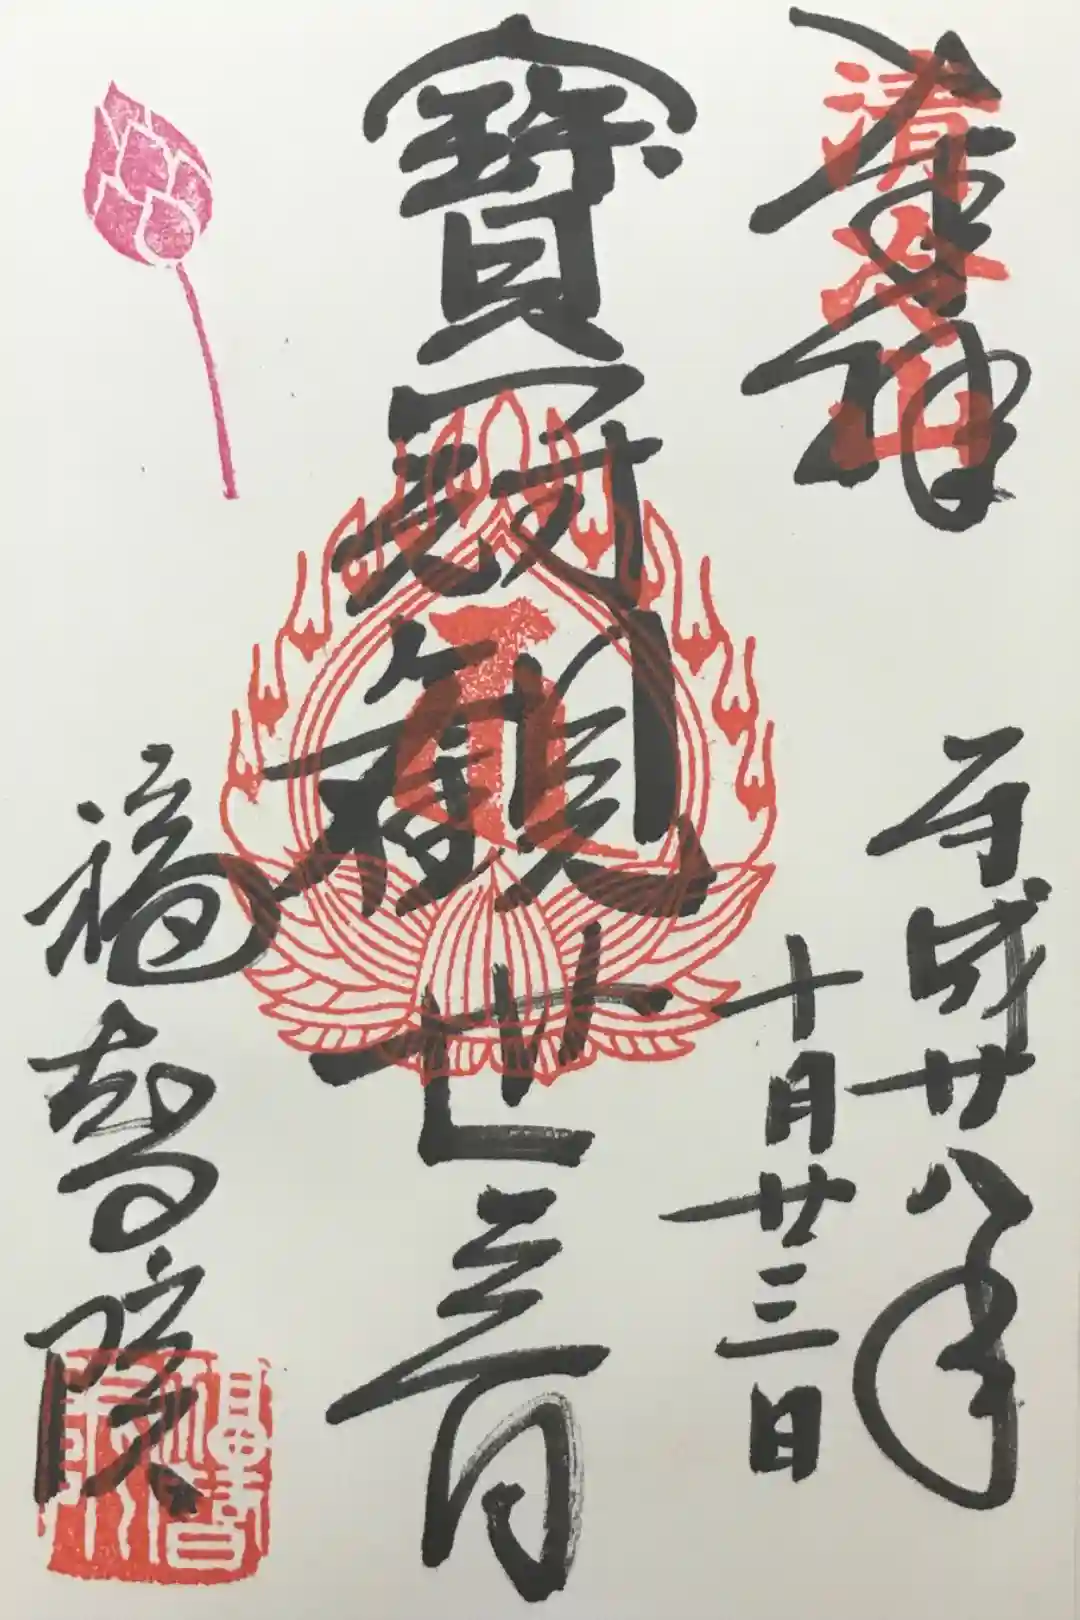 奉拝
清冷山
平成廿八年
十月廿三日
寶冠観世音
福智院
福智院